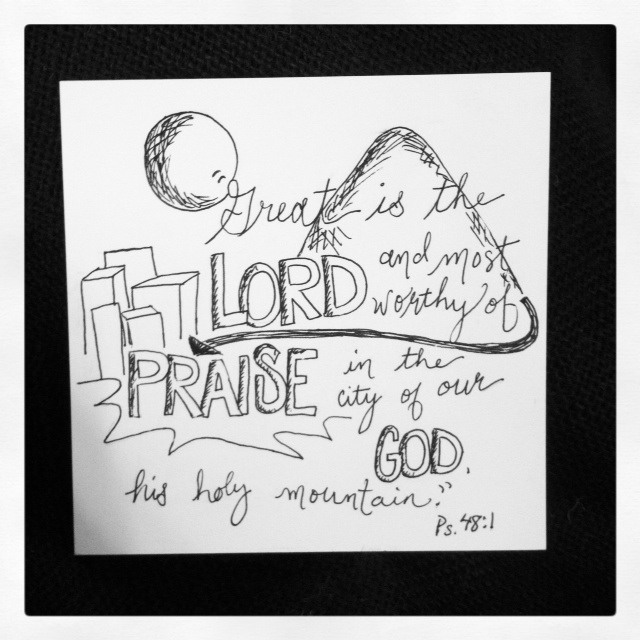 "Great is the
LORD and most
worthy of
PRAISE in the
city of our
GOD,
his holy mountain."
Ps. 48:1